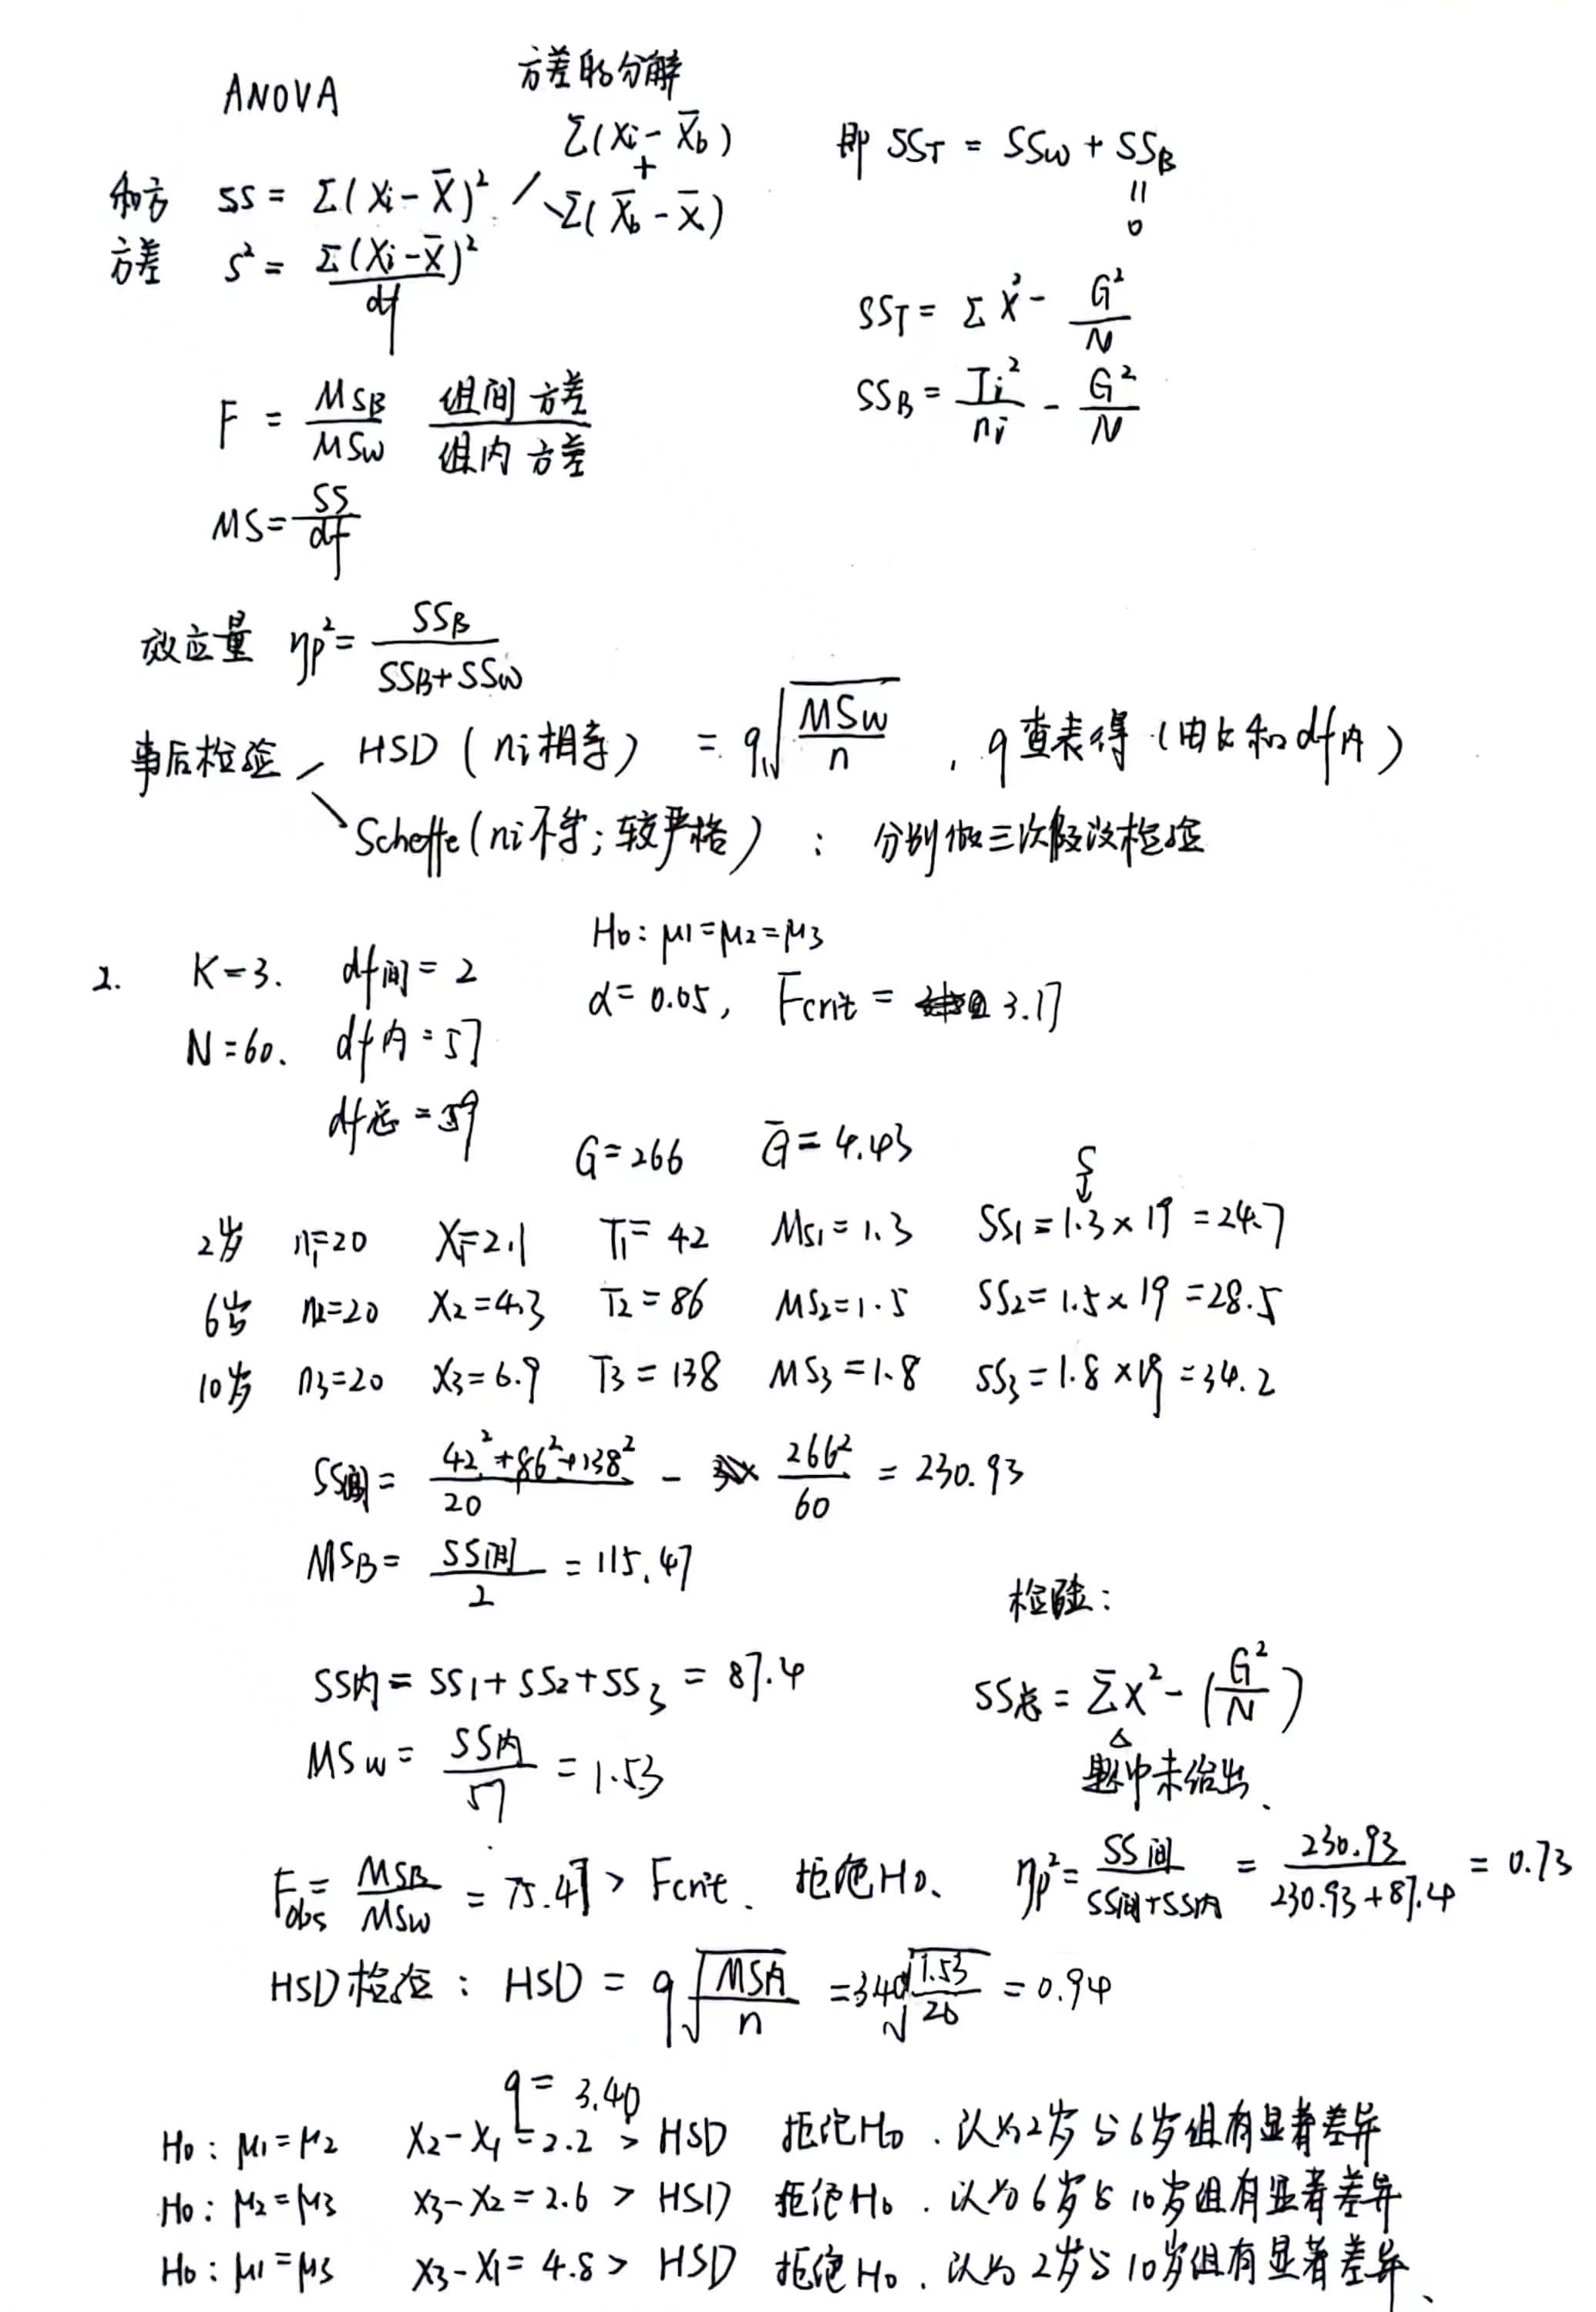 ANOVA 方差的分解
Σ(Xi - X̄b)
+
和方 SS = Σ(Xi - X̄)² / \ Σ(X̄b - X̄)
方差 S² = Σ(Xi - X̄)² / df
即 SST = SSw + SSB
||
0
SST = ΣX² - G²/N
SSB = Ti²/ni - G²/N
F = MSB/MSw 组间方差/组内方差
MS = SS/df
效应量 ηp² = SSB/(SSB+SSw)
事后检验 / HSD (ni相等) = q√(MSw/n) , q查表得 (由k和df内)
\ Scheffe (ni不等; 较严格) : 分别做三次假设检验
2. K=3. df间=2 H0: μ1=μ2=μ3
N=60. df内=57 α=0.05, Fcrit = 3.17
df总=59
G=266 Ḡ=4.43 S
↓
2岁 n1=20 X1=2.1 T1=42 MS1=1.3 SS1=1.3×19=24.7
6岁 n2=20 X2=4.3 T2=86 MS2=1.5 SS2=1.5×19=28.5
10岁 n3=20 X3=6.9 T3=138 MS3=1.8 SS3=1.8×19=34.2
SS间 = (42²+86²+138²)/20 - 266²/60 = 230.93
MSB = SS间/2 = 115.47
SS内 = SS1+SS2+SS3 = 87.4
MSw = SS内/57 = 1.53
检验:
SS总 = ΣX² - (G²/N)
△
题中未给出、
Fobs = MSB/MSw = 75.47 > Fcrit. 拒绝H0、 ηp² = SS间/(SS间+SS内) = 230.93/(230.93+87.4) = 0.73
HSD检验: HSD = q√(MS内/n) = 3.40√(1.53/20) = 0.94
q = 3.40
H0: μ1=μ2 X2-X1=2.2 > HSD 拒绝H0. 认为2岁与6岁组有显著差异
H0: μ2=μ3 X3-X2=2.6 > HSD 拒绝H0. 认为6岁与10岁组有显著差异
H0: μ1=μ3 X3-X1=4.8 > HSD 拒绝H0. 认为2岁与10岁组有显著差异、